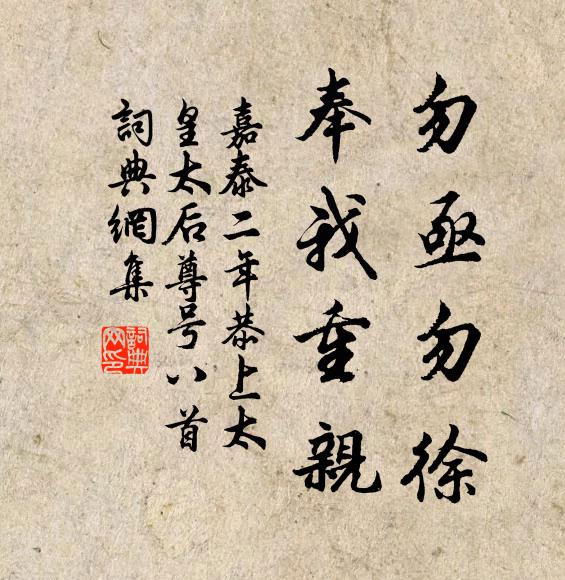 勿亟勿徐
奉我重親
嘉泰二年恭上太
皇太后尊号八首
詞典網集
詞典网印